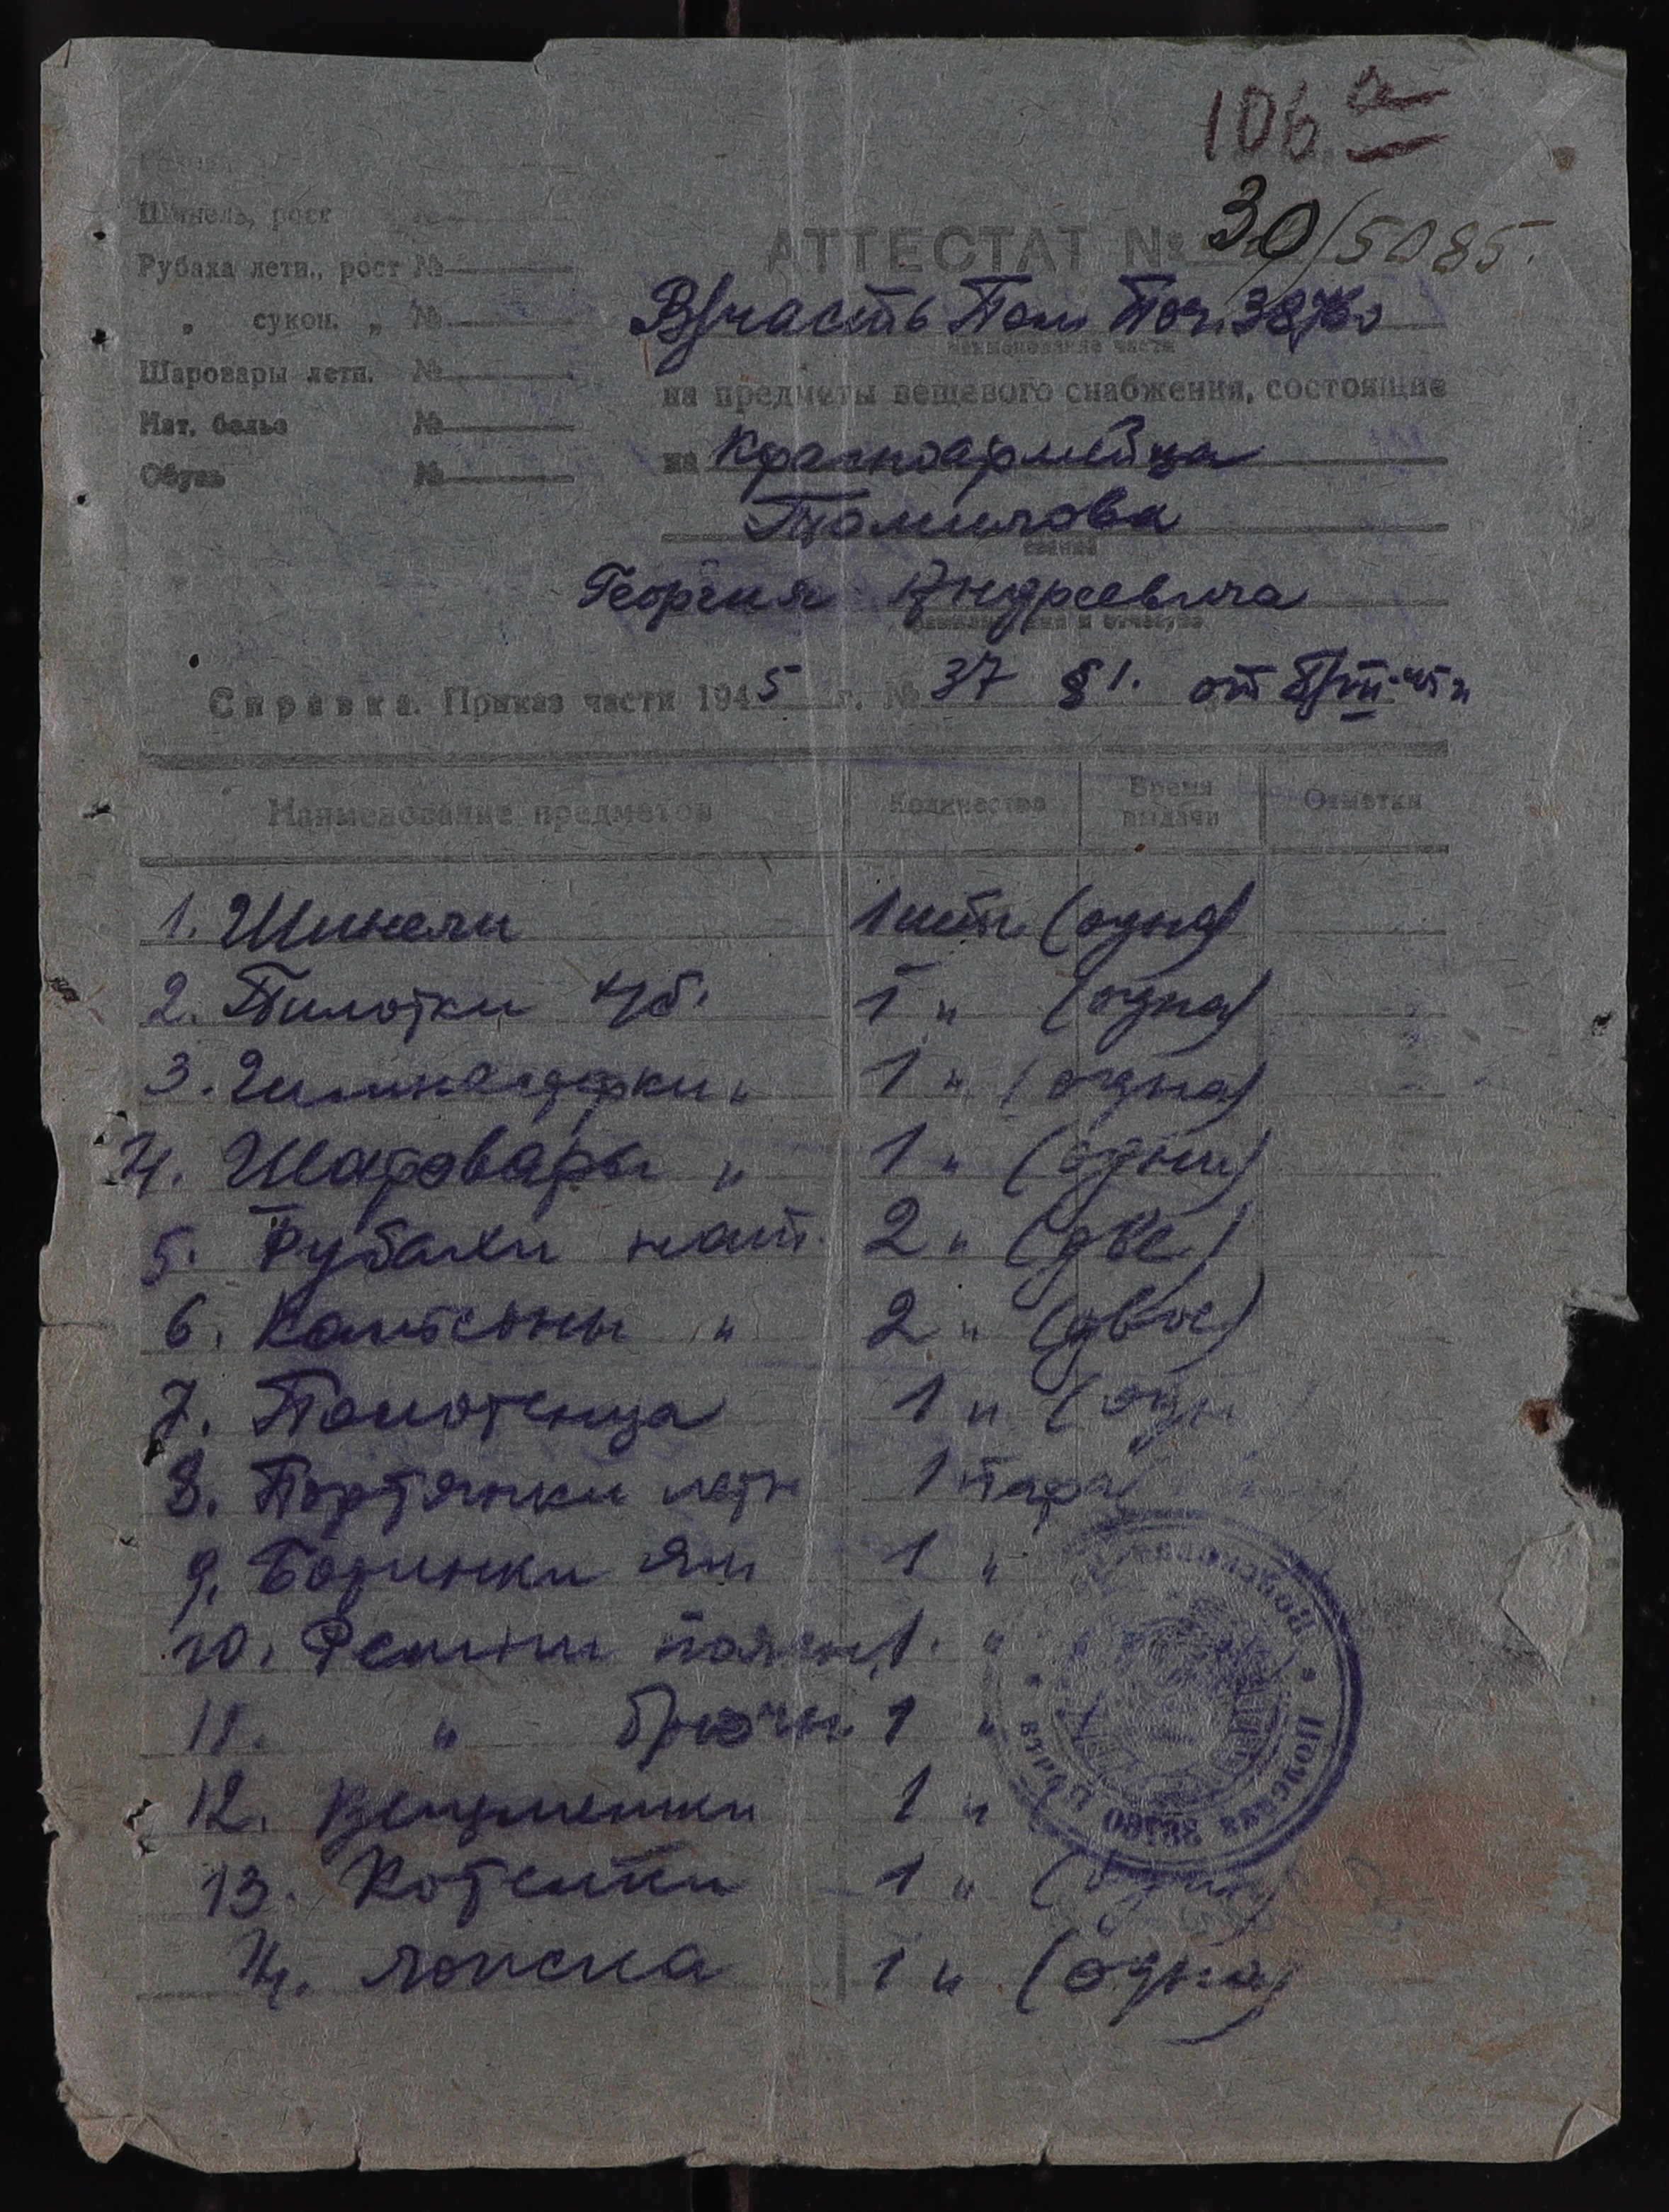 106 а
Шинель, рост №
Рубаха летн., рост №
„ сукон. „ №
Шаровары летн. №
Нат. белье №
Обувь №
АТТЕСТАТ № 30/5085.
В/часть Пол. Поч.
наименование части
на предметы вещевого снабжения, состоящие
на Красноармейца
Томилова
звание
Георгия Андреевича
фамилия, имя и отчество
Справка. Приказ части 1945 г. № 37 §1. от
Наименование предметов Количество Время выдачи Отметки
1. Шинели 1 шт. (одна)
2. Пилотки х/б. 1 " (одна)
3. Гимнастерки " 1 " (одна)
4. Шаровары " 1 " (одни)
5. Рубахи нат. 2 " (две)
6. Кальсоны " 2 " (двое)
7. Полотенца 1 " (одн
8. Портянки летн 1 пара
9. Ботинки 1 "
10. Ремни поясн. 1. "
11. " брючн. 1 "
12. Вещмешки 1 "
13. Котелки 1 "
14. Ложка 1 " (одна)
Полевая Почта • Войсковая